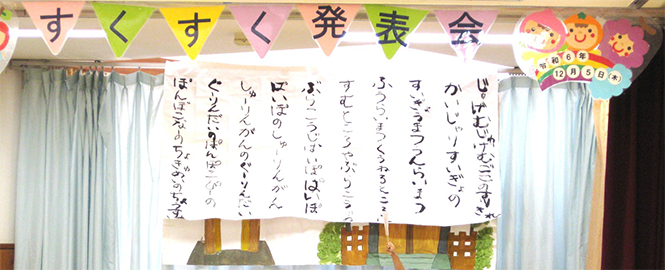 すくすく発表会
令和6年
12月5日(木)
じゅげむじゅげむごこうのすりきれ
かいじゃりすいぎょの
すいぎょうまつうんらいまつ
ふうらいまつくうねるところに
すむところやぶらこうじの
ぶらこうじぱいぽぱいぽ
ぱいぽのしゅーりんがん
しゅーりんがんのぐーりんだい
ぐーりんだいのぽんぽこぴーの
ぽんぽこなーのちょうきゅうめいのちょうすけ